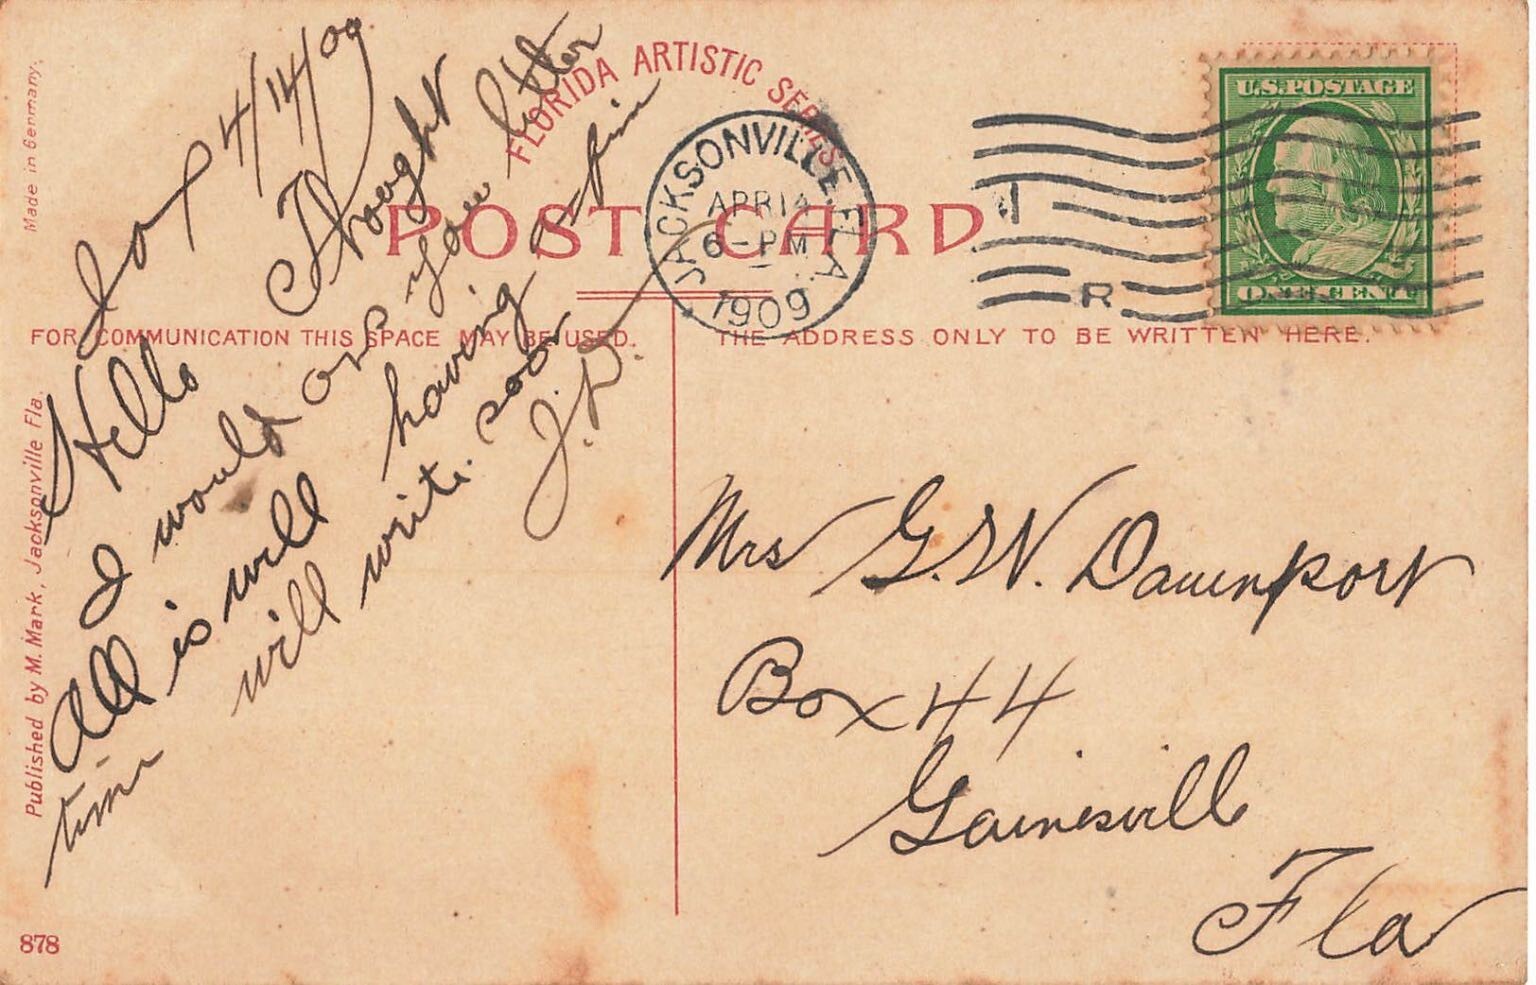 Made in Germany.
Published by M. Mark, Jacksonville Fla.
FLORIDA ARTISTIC SERIES
POST CARD
FOR COMMUNICATION THIS SPACE MAY BE USED.
THE ADDRESS ONLY TO BE WRITTEN HERE.
JACKSONVILLE, FLA.
APR 14
6 - PM
1909
R
U.S. POSTAGE
ONE CENT
Jax 4/14/09
Hello Thought
I would you later
All is well having a fine
time will write soon
J.D.
Mrs G.W. Davenport
Box 44
Gainesville
Fla
878